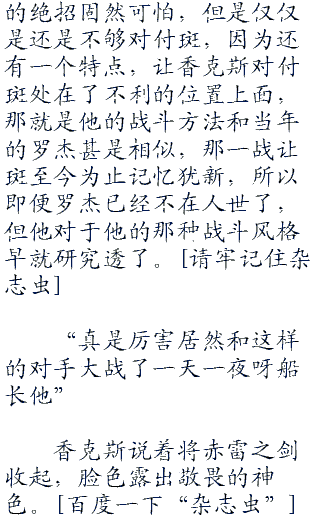 的绝招固然可怕，但是仅仅
是还是不够对付斑，因为还
有一个特点，让香克斯对付
斑处在了不利的位置上面，
那就是他的战斗方法和当年
的罗杰甚是相似，那一战让
斑至今为止记忆犹新，所以
即便罗杰已经不在人世了，
但他对于他的那种战斗风格
早就研究透了。[请牢记住杂
志虫]
“真是厉害居然和这样
的对手大战了一天一夜呀船
长他”
香克斯说着将赤雷之剑
收起，脸色露出敬畏的神
色。[百度一下“杂志虫”]